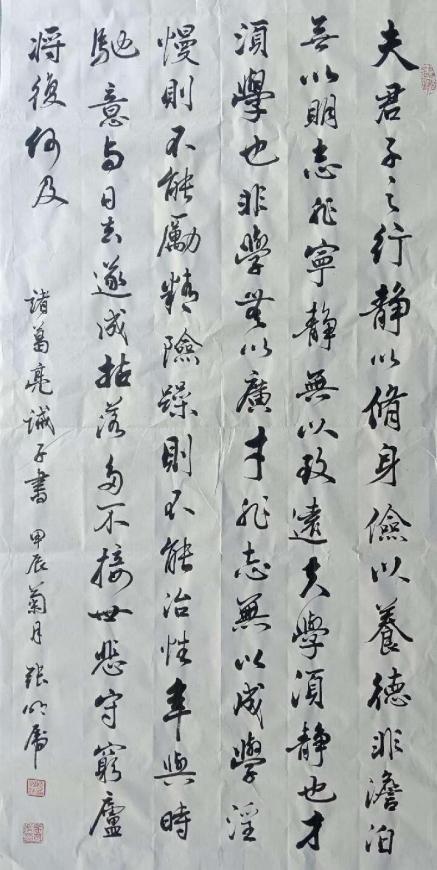 夫君子之行静以脩身儉以養德非澹泊
無以明志非寧静無以致遠夫學須静也才
須學也非學無以廣才非志無以成學淫
慢則不能勵精險躁則不能治性年與時
馳意與日去遂成枯落多不接世悲守窮廬
将復何及
諸葛亮誡子書 甲辰菊月 張